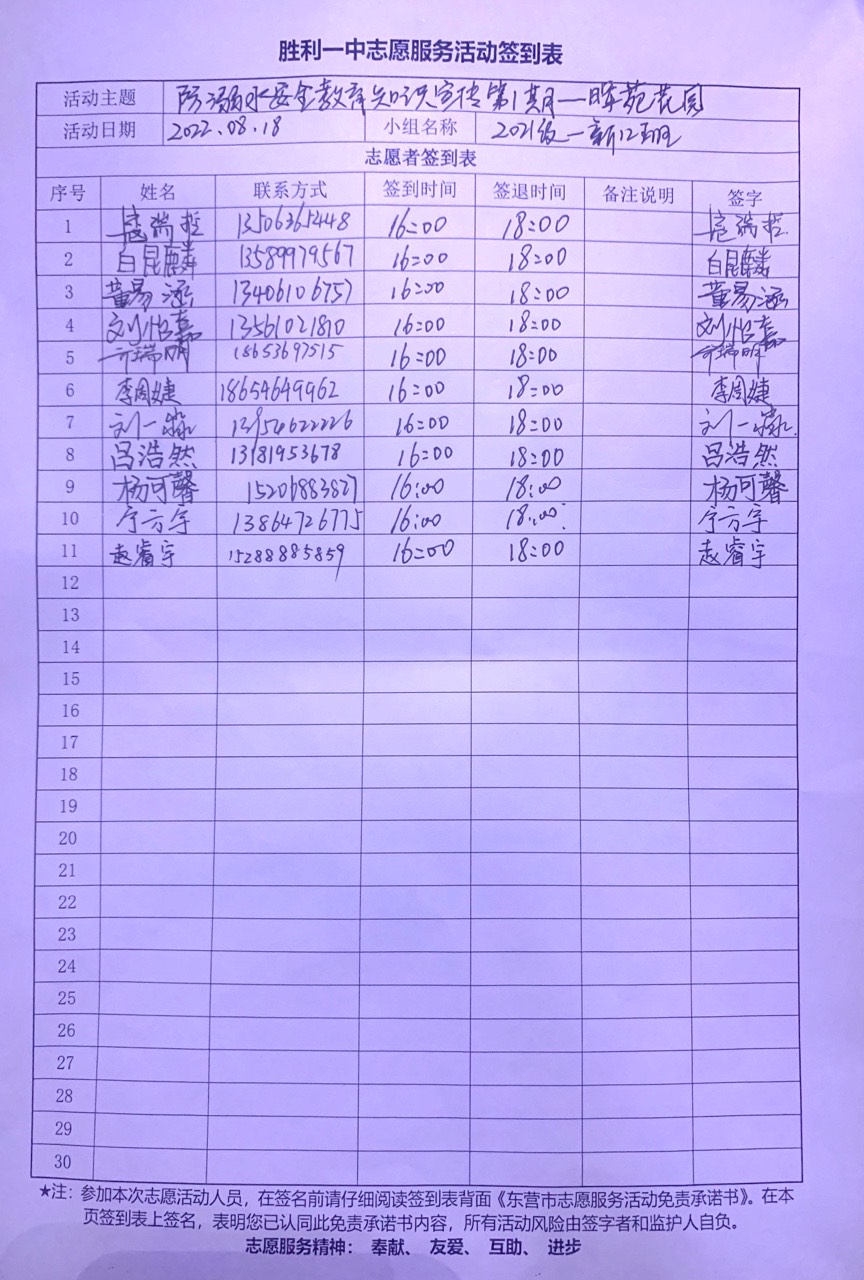 胜利一中志愿服务活动签到表
活动主题 防溺水安全教育知识宣传第1期—晖苑花园
活动日期 2022.08.18 小组名称 2021级一新12班
志愿者签到表
序号 姓名 联系方式 签到时间 签退时间 备注说明 签字
1 瑞哲 16:00 18:00 瑞哲
2 白昆麟 13589979567 16:00 18:00 白昆麟
3 董易涵 13406106757 16:00 18:00 董易涵
4 刘怡嘉 13561021810 16:00 18:00 刘怡嘉
5 亓瑞明 18653697515 16:00 18:00 亓瑞明
6 李周婕 18654649962 16:00 18:00 李周婕
7 刘一淼 16:00 18:00 刘一淼
8 吕浩然 13181953678 16:00 18:00 吕浩然
9 杨可馨 15206883827 16:00 18:00 杨可馨
10 宁方宇 13864726775 16:00 18:00 宁方宇
11 赵睿宇 15288885859 16:00 18:00 赵睿宇
12
13
14
15
16
17
18
19
20
21
22
23
24
25
26
27
28
29
30
★注：参加本次志愿活动人员，在签名前请仔细阅读签到表背面《东营市志愿服务活动免责承诺书》。在本
页签到表上签名，表明您已认同此免责承诺书内容，所有活动风险由签字者和监护人自负。
志愿服务精神： 奉献、 友爱、 互助、 进步